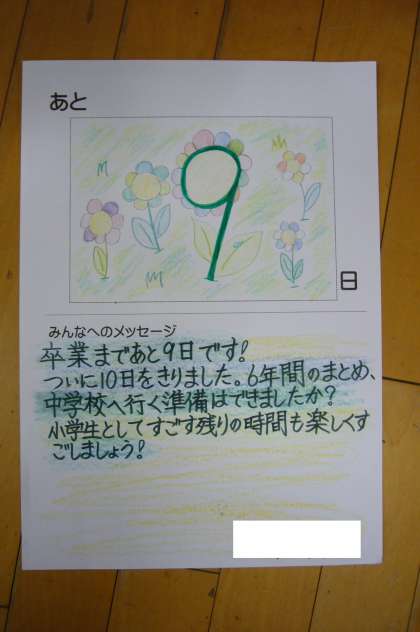 あと
9
日
みんなへのメッセージ
卒業まであと9日です!
ついに10日をきりました。6年間のまとめ、
中学校へ行く準備はできましたか?
小学生としてすごす残りの時間も楽しくす
ごしましょう!